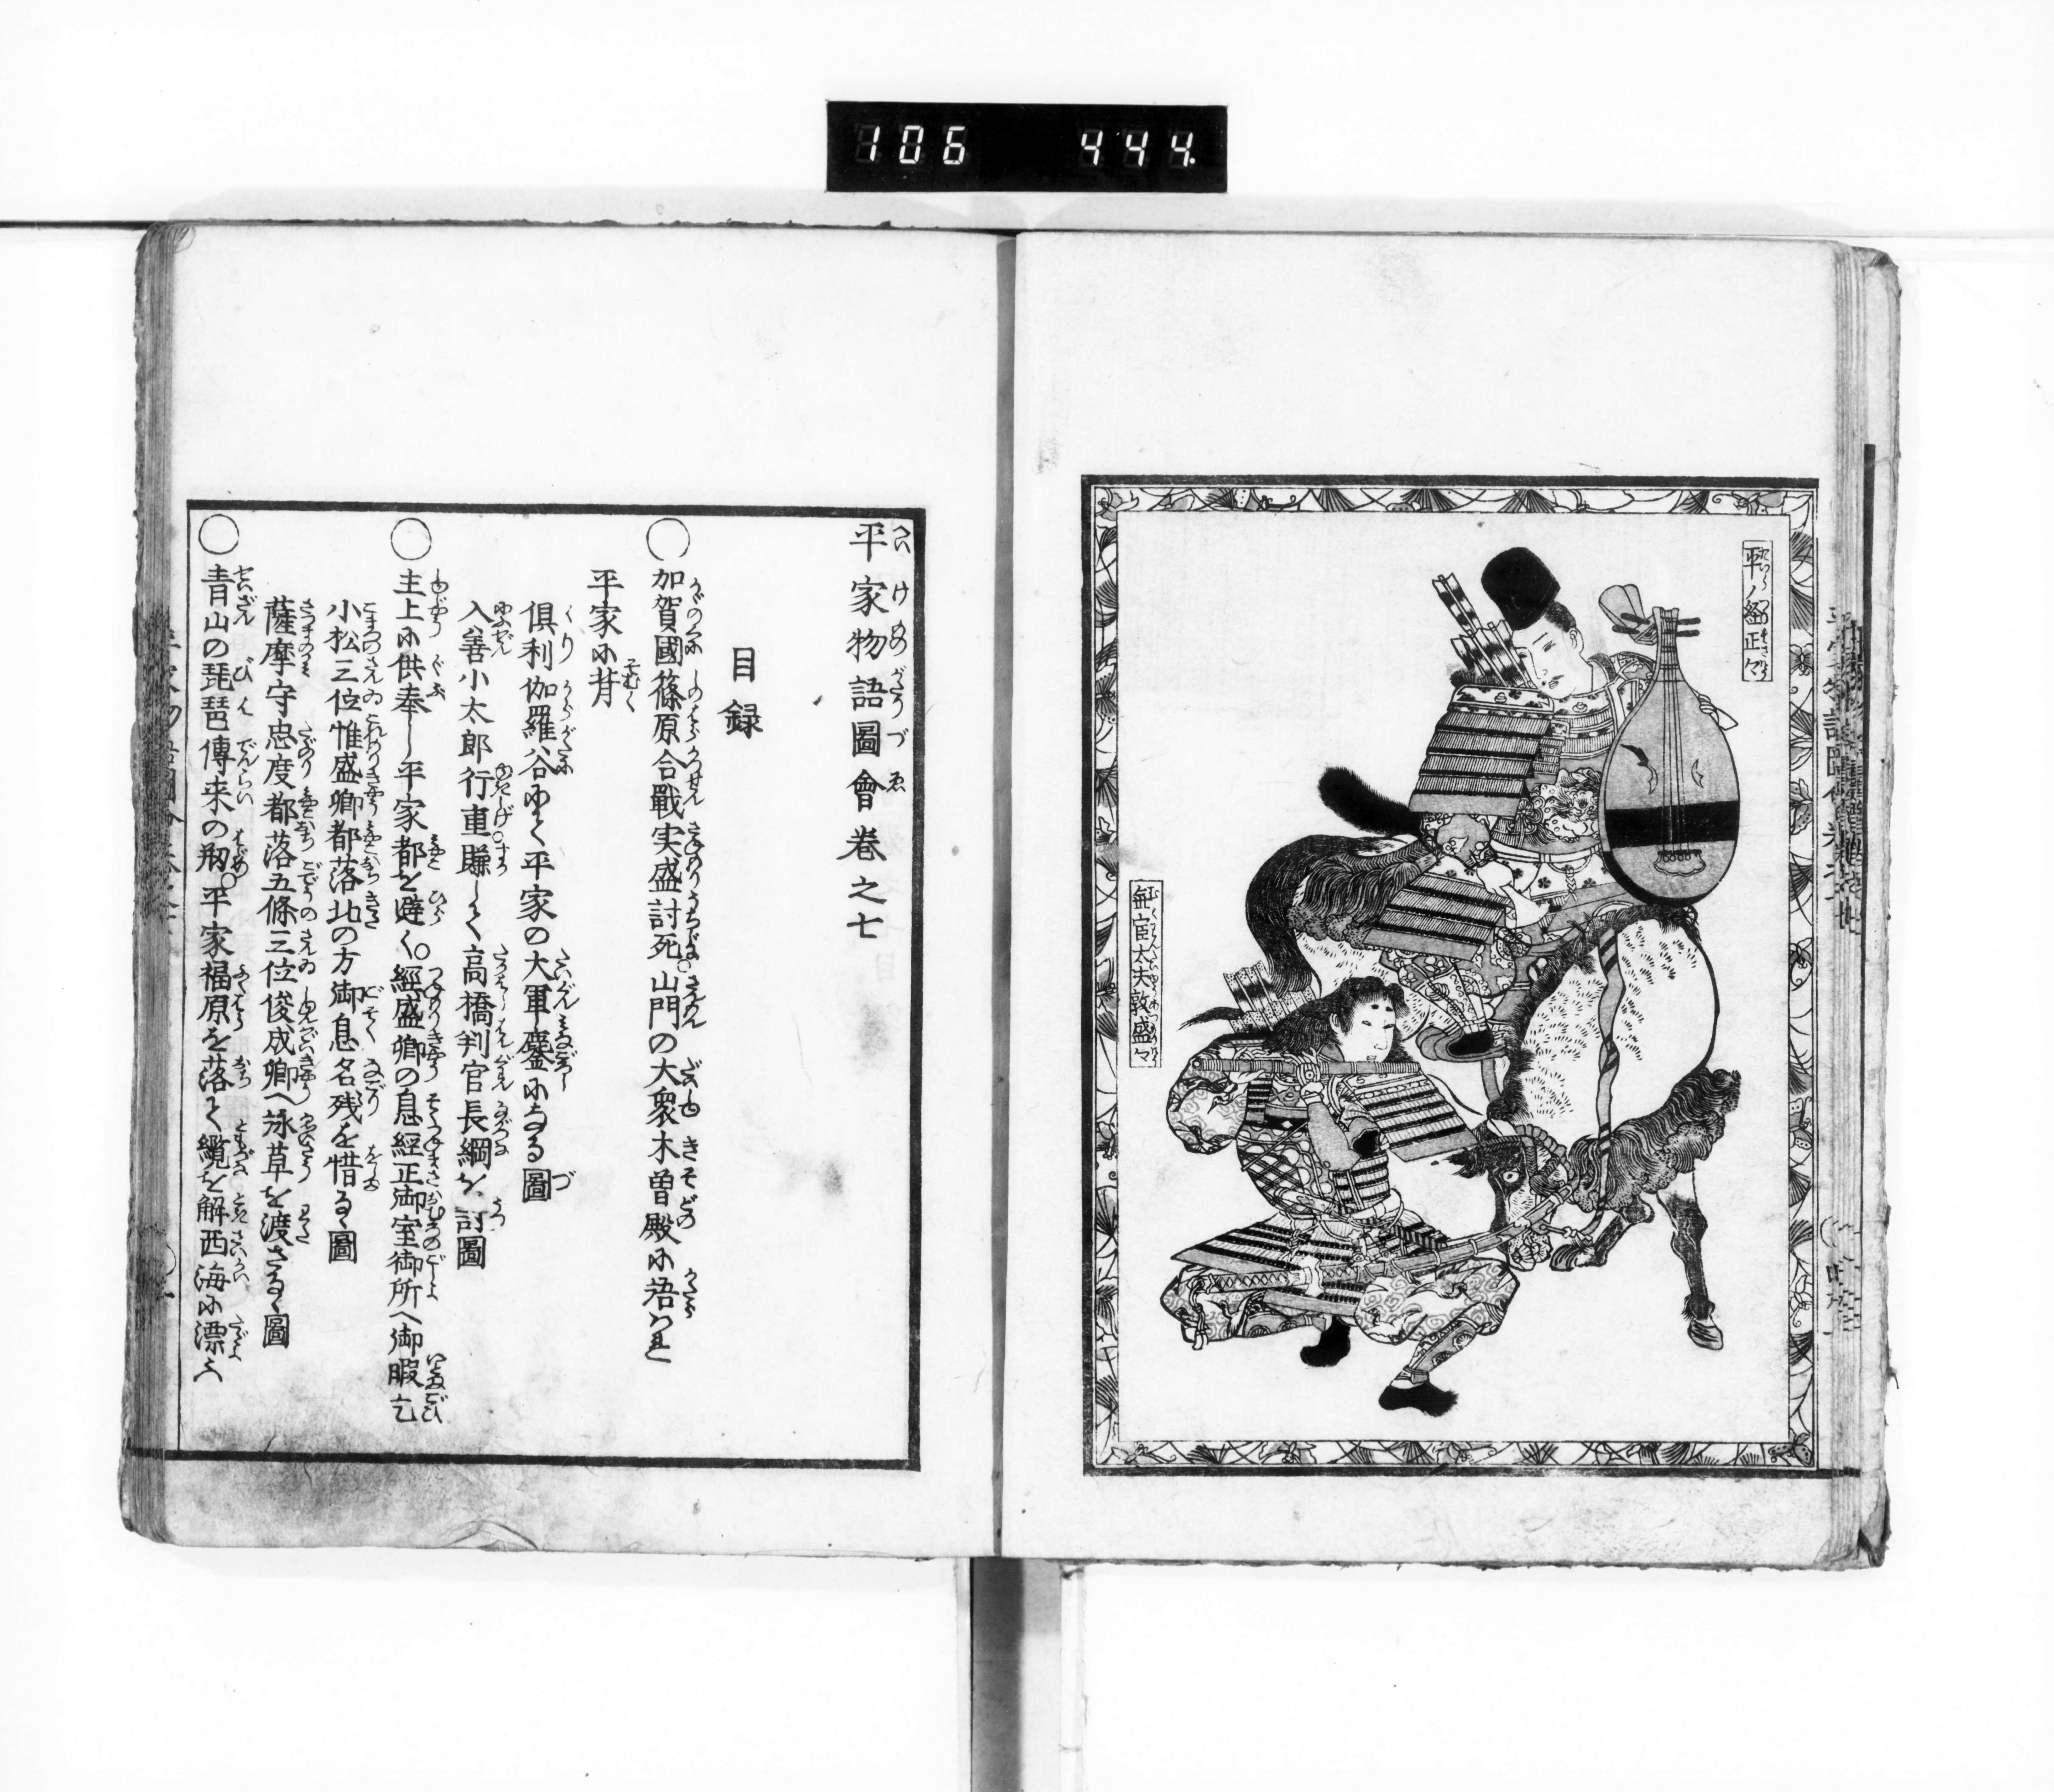 106 444
平ノ經正
無官太夫敦盛
平家物語圖會巻之七
目録
○加賀國篠原合戰実盛討死○山門の大衆木曽殿に語はれ
平家に背
倶利伽羅谷にて平家の大軍鏖になる圖
入善小太郎行重賺して高橋判官長綱を討圖
○主上に供奉し平家都を避く○經盛卿の息經正御室御所へ御暇乞
小松三位惟盛卿都落北の方御息名残を惜る圖
薩摩守忠度都落五條三位俊成卿へ詠草を渡さる圖
○青山の琵琶傳来の初○平家福原を落て纜を解西海に漂ふ